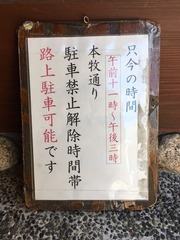 只今の時間
午前十一時～午後三時
本牧通り
駐車禁止解除時間帯
路上駐車可能です